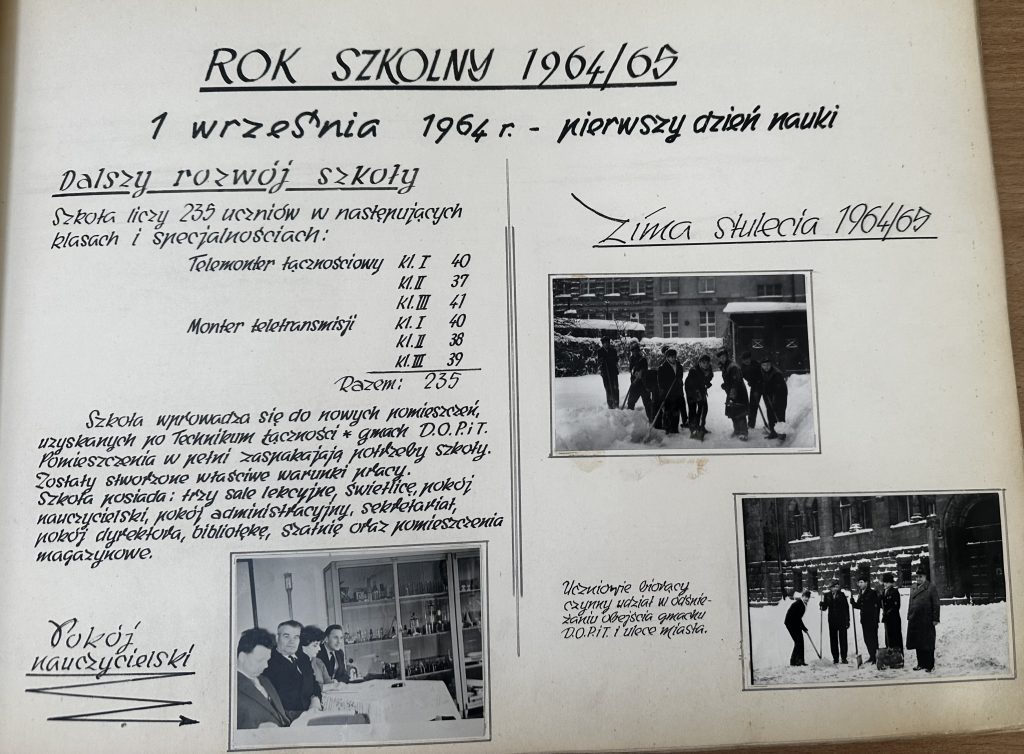 ROK SZKOLNY 1964/65
1 września 1964 r. - pierwszy dzień nauki
Dalszy rozwój szkoły
Szkoła liczy 235 uczniów w następujących
klasach i specjalnościach:
Telemonter łącznościowy kl. I 40
kl. II 37
kl. III 41
Monter teletransmisji kl. I 40
kl. II 38
kl. III 39
Razem: 235
Szkoła wprowadza się do nowych pomieszczeń,
uzyskanych po Technikum Łączności * gmach D.O.P.iT.
Pomieszczenia w pełni zaspakajają potrzeby szkoły.
Zostały stworzone właściwe warunki pracy.
Szkoła posiada: trzy sale lekcyjne, świetlicę, pokój
nauczycielski, pokój administracyjny, sekretariat,
pokój dyrektora, bibliotekę, szatnię oraz pomieszczenia
magazynowe.
Pokój
nauczycielski
Zima stulecia 1964/65
Uczniowie biorący
czynny udział w odśnie-
żaniu obejścia gmachu
D.O.P.iT. i ulice miasta.